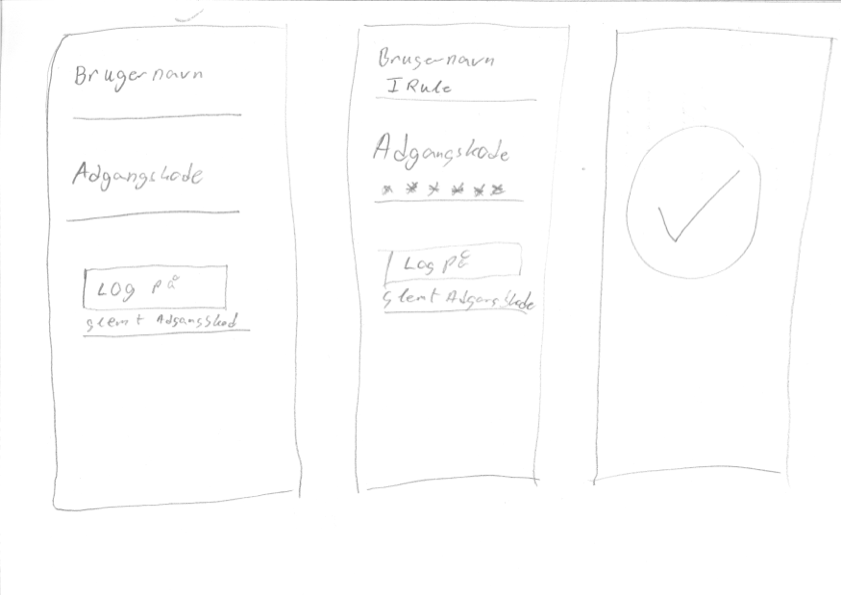 Brugernavn
Adgangskode
LOG på
glemt Adgangskod
Brugernavn
I Rule
Adgangskode
******
Log på
glemt Adgangskode